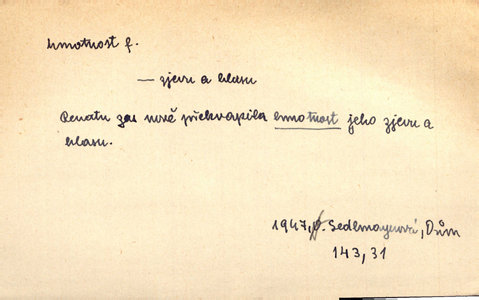 hmotnost f.
— zjevu a hlasu
Renatu zas nově překvapila hmotnost jeho zjevu a
hlasu.
1947, Sedlmayerová, Dům
143,31